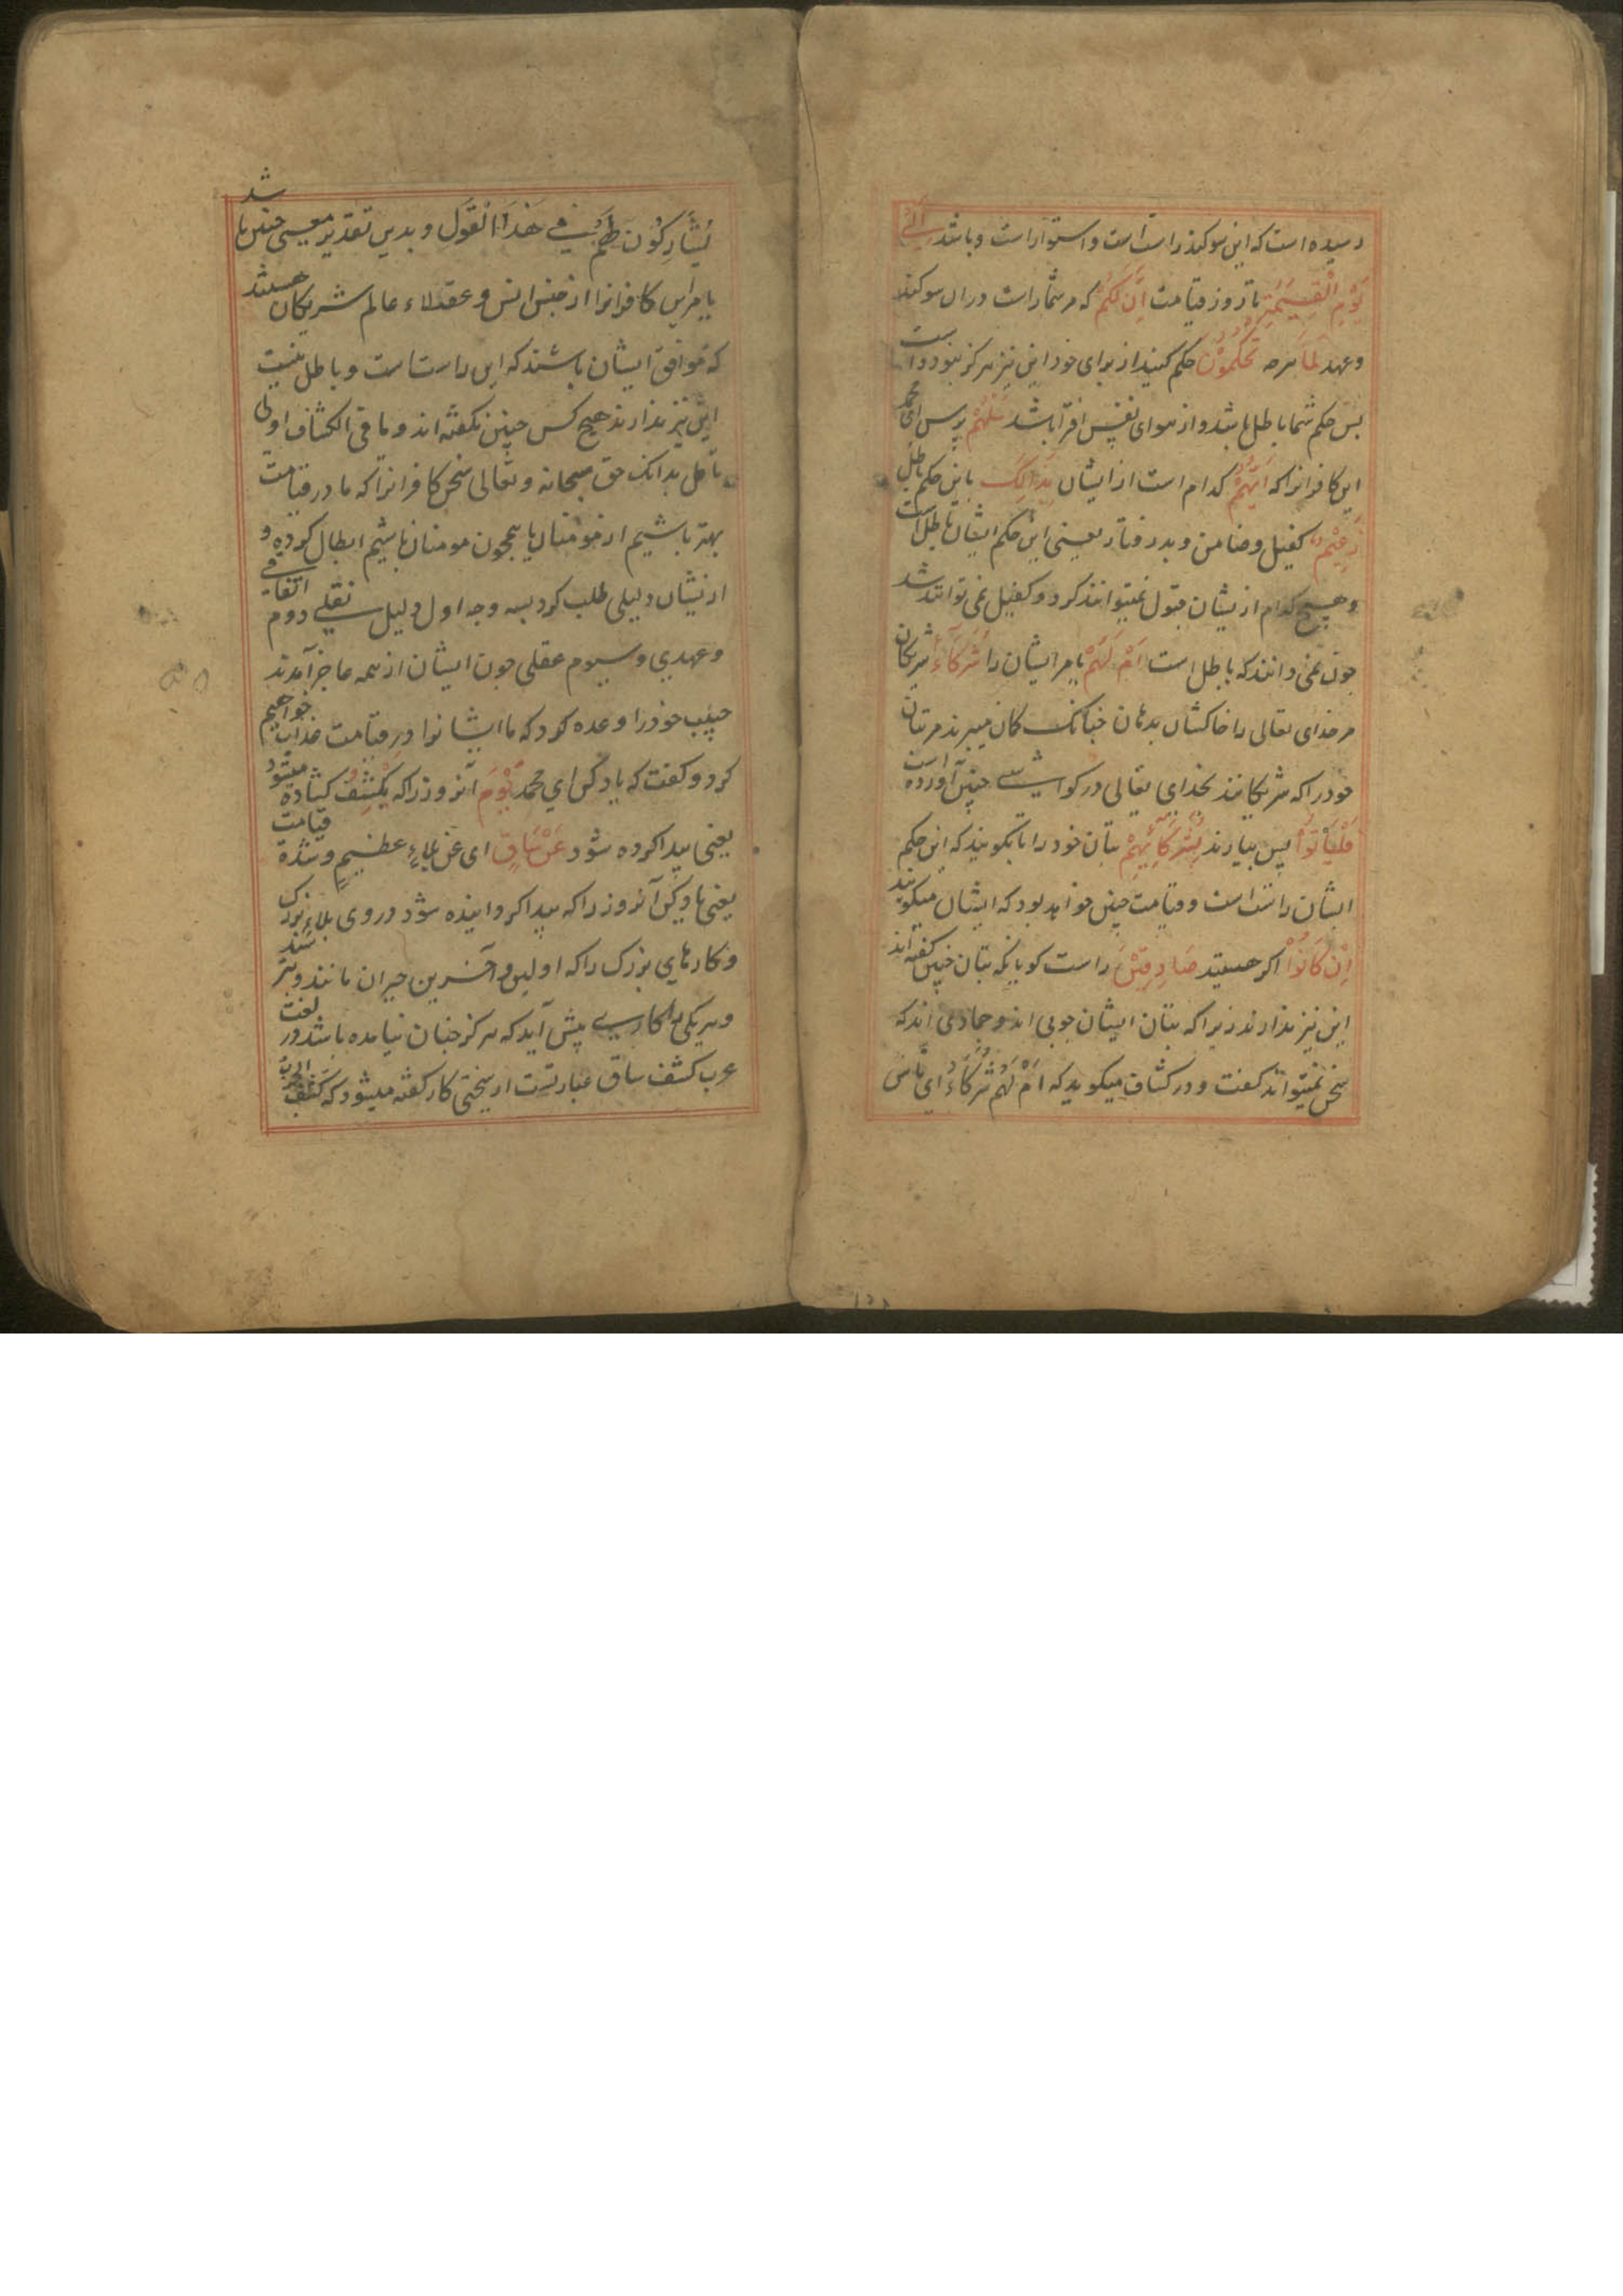 رسیده است که این سوکند راست است و استوار است و باشد اِلٰی
یَوْمِ الْقِیٰمَةِ تا روز قیامت اِنَّ لَکُمْ که مر شما راست در ان سوکند
و عهد لَمَا هرچه تَحْکُمُوْنَ حکم کنید از برای خود این نیز هرکز نبود و است
بس حکم شما باطل باشد و از هوای نفس افترا باشد سَلْهُمْ بپرس ای محمد
این کافرانرا که اَیُّهُمْ کدام است از ایشان بِذٰلِکَ باین حکم باطل
زَعِیْمٌ کفیل و ضامن و بدرفتار یعنی این حکم ایشان باطل است
و هیچ کدام از یشان قبول نمیتوانند کرد و کفیل نمی توانند شد
چون می دانند که باطل است اَمْ لَهُمْ یا مر ایشان را شُرَکَآءُ شریکان
مر خدای تعالی را خاکشان بدهان چنانک کمان میبرند مر بتان
خود را که شریکانند بخدای تعالی در کواشی چنین آورده است
فَلْیَأْتُوْا پس بیارند بِشُرَکَآئِهِمْ بتان خود را تا بکویند که این حکم
ایشان راست است و قیامت چنین خواهد بود که ایشان میکویند
اِنْ کَانُوْا اکر هستند صَادِقِیْنَ راست کویانکه بتان چنین کفته اند
این نیز ندارند زیرا که بتان ایشان چوبی اند و جمادی اند که
سخن نمیتوانند کفت و در کشاف میکوید که اَمْ لَهُمْ شُرَکَاءُ ای نَاسٌ
یُشَارِکُوْنَهُمْ فِی هٰذَا الْقَوْلِ و بدین تقدیر معنی چنین باشد
یا مر این کافرانرا از جنس انس و عقلاء عالم شریکان هستند
که موافق ایشان باشند که این راست است و باطل نیست
این نیز ندارند هیچ کس چنین نکفته اند و ما فی الکشاف اولی
تأمل بدانک حق سبحانه و تعالی سخن کافرانرا که ما در قیامت
بهتر باشیم از مؤمنان یا همچون مومنان باشیم ابطال کرده و
از یشان دلیلی طلب کرد بسه وجه اول دلیل نقلی دوم اتفاقی
و عهدی و سیوم عقلی چون ایشان از همه عاجز آمدند
حبیب خود را وعده کرد که ما ایشانرا در قیامت عذاب خواهیم
کرد و کفت که یاد کن ای محمد یَوْمَ آنروز را که یُکْشَفُ کشاده میشود
یعنی پیدا کرده شود عَنْ سَاقٍ ای عن بلاءٍ عظیمٍ و شدة قیامت
یعنی یاد کن آنروز را که پیدا کردانیده شود در وی بلاء بزرک
و کارهای بزرک را که اولین و آخرین حیران مانند و بترسند
و هر یکی را کاری پیش آید که هرکز چنان نیامده باشد و در لغت
عرب کشف ساق عبارتست از سختی کار کفته میشود که کَشَفَتِ الحربُ